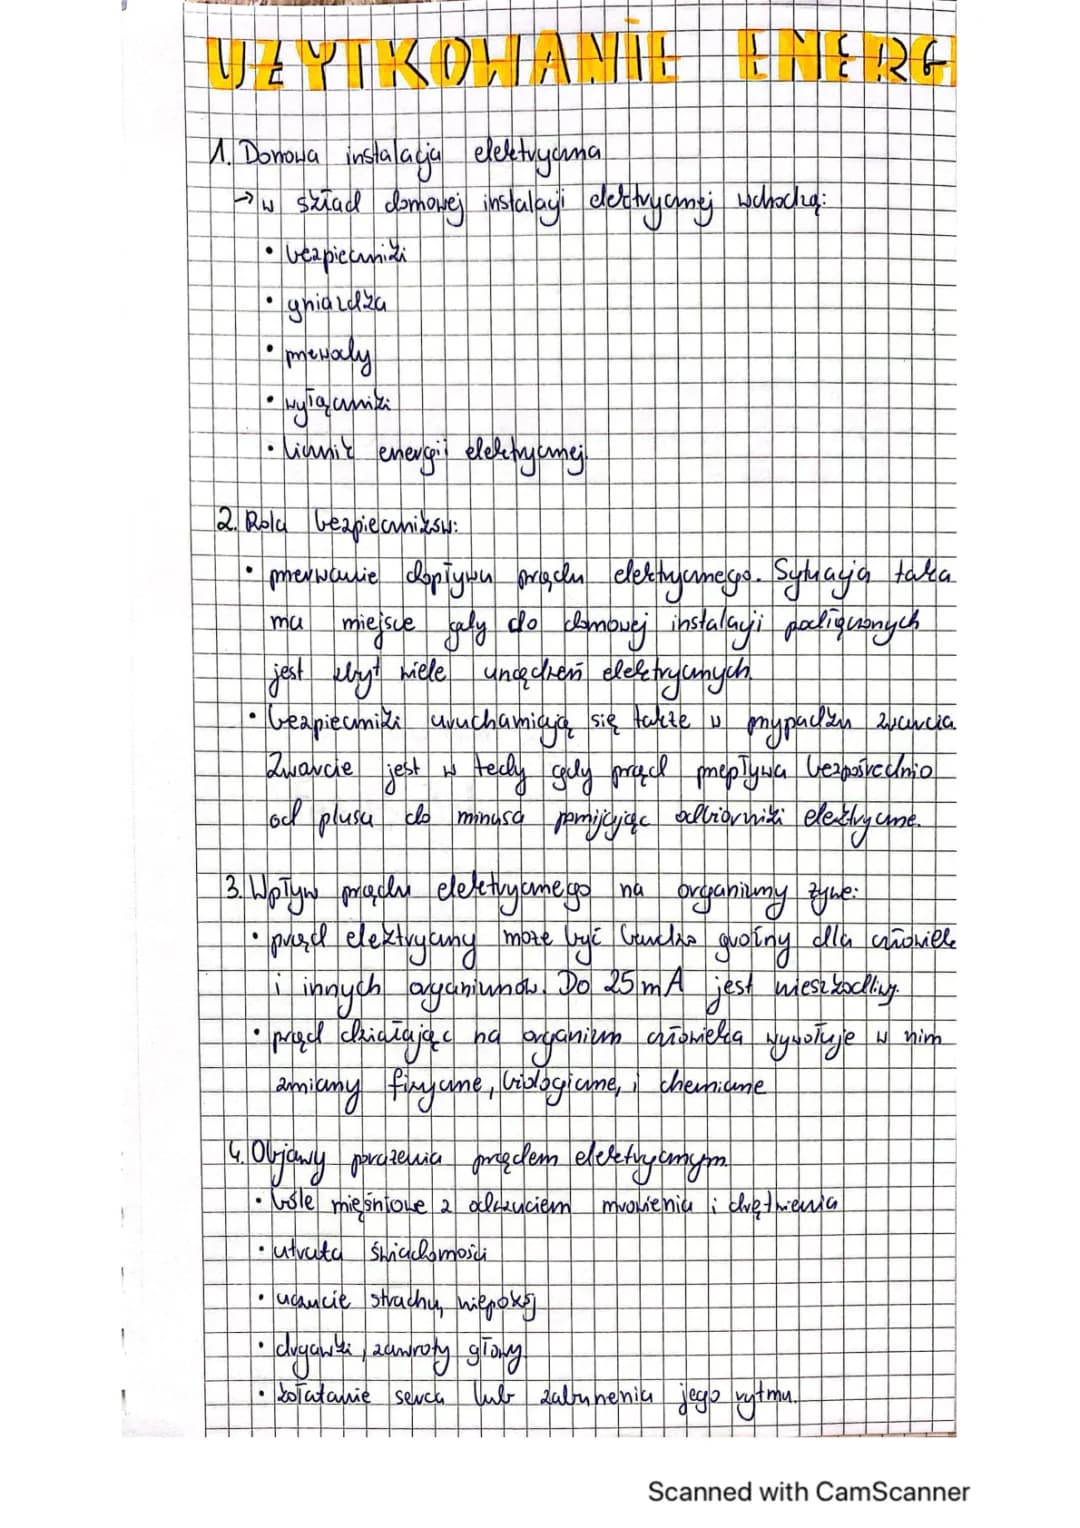 UŻYTKOWANIE ENERG
1. Domowa instalacja elektryczna
→ w skład domowej instalacji elektrycznej wchodzą:
• bezpieczniki
• gniazdka
• przewody
• wyłączniki
• licznik energii elektrycznej.
2. Rola bezpieczników:
• przerwanie dopływu prądu elektrycznego. Sytuacja taka
ma miejsce gdy do domowej instalacji podłączonych
jest zbyt wiele urządzeń elektrycznych.
• bezpieczniki uruchamiają się także w przypadku zwarcia.
Zwarcie jest w tedy gdy prąd przepływa bezpośrednio
od plusa do minusa pomijając odbiorniki elektryczne.
3. Wpływ prądu elektrycznego na organizmy żywe:
• prąd elektryczny może być bardzo groźny dla człowieka
i innych organizmów. Do 25 mA jest nieszkodliwy.
• prąd działając na organizm człowieka wywołuje w nim
zmiany fizyczne, biologiczne, i chemiczne
4. Objawy porażenia prądem elektrycznym.
• bóle mięśniowe z odczuciem mrowienia i drętwienia
• utrata świadomości
• uczucie strachu, niepokój
• drgawki, zawroty głowy
• kołatanie serca lub zaburzenia jego rytmu.
Scanned with CamScanner